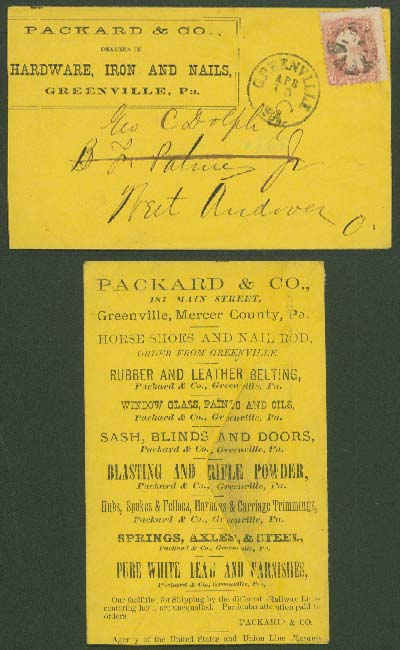 PACKARD & CO.,
DEALERS IN
HARDWARE, IRON AND NAILS,
GREENVILLE, Pa.
GREENVILLE
APR
Geo C Dolph
B F Palmer Jr
West Andover
O.
PACKARD & CO.,
187 MAIN STREET,
Greenville, Mercer County, Pa.
HORSE SHOES AND NAIL ROD,
ORDER FROM GREENVILLE.
RUBBER AND LEATHER BELTING,
Packard & Co., Greenville, Pa.
WINDOW GLASS, PAINTS AND OILS,
Packard & Co., Greenville, Pa.
SASH, BLINDS AND DOORS,
Packard & Co., Greenville, Pa.
BLASTING AND RIFLE POWDER,
Packard & Co., Greenville, Pa.
Hubs, Spokes & Felloes, Harness & Carriage Trimmings,
Packard & Co., Greenville, Pa.
SPRINGS, AXLES, & STEEL,
Packard & Co., Greenville, Pa.
PURE WHITE LEAD AND VARNISHES,
Packard & Co., Greenville, Pa.
Our facilities for Shipping by the different Railway Lines
centering here, are unequalled. Particular attention paid to
orders
PACKARD & CO.
Agency of the United States and Union Line Express